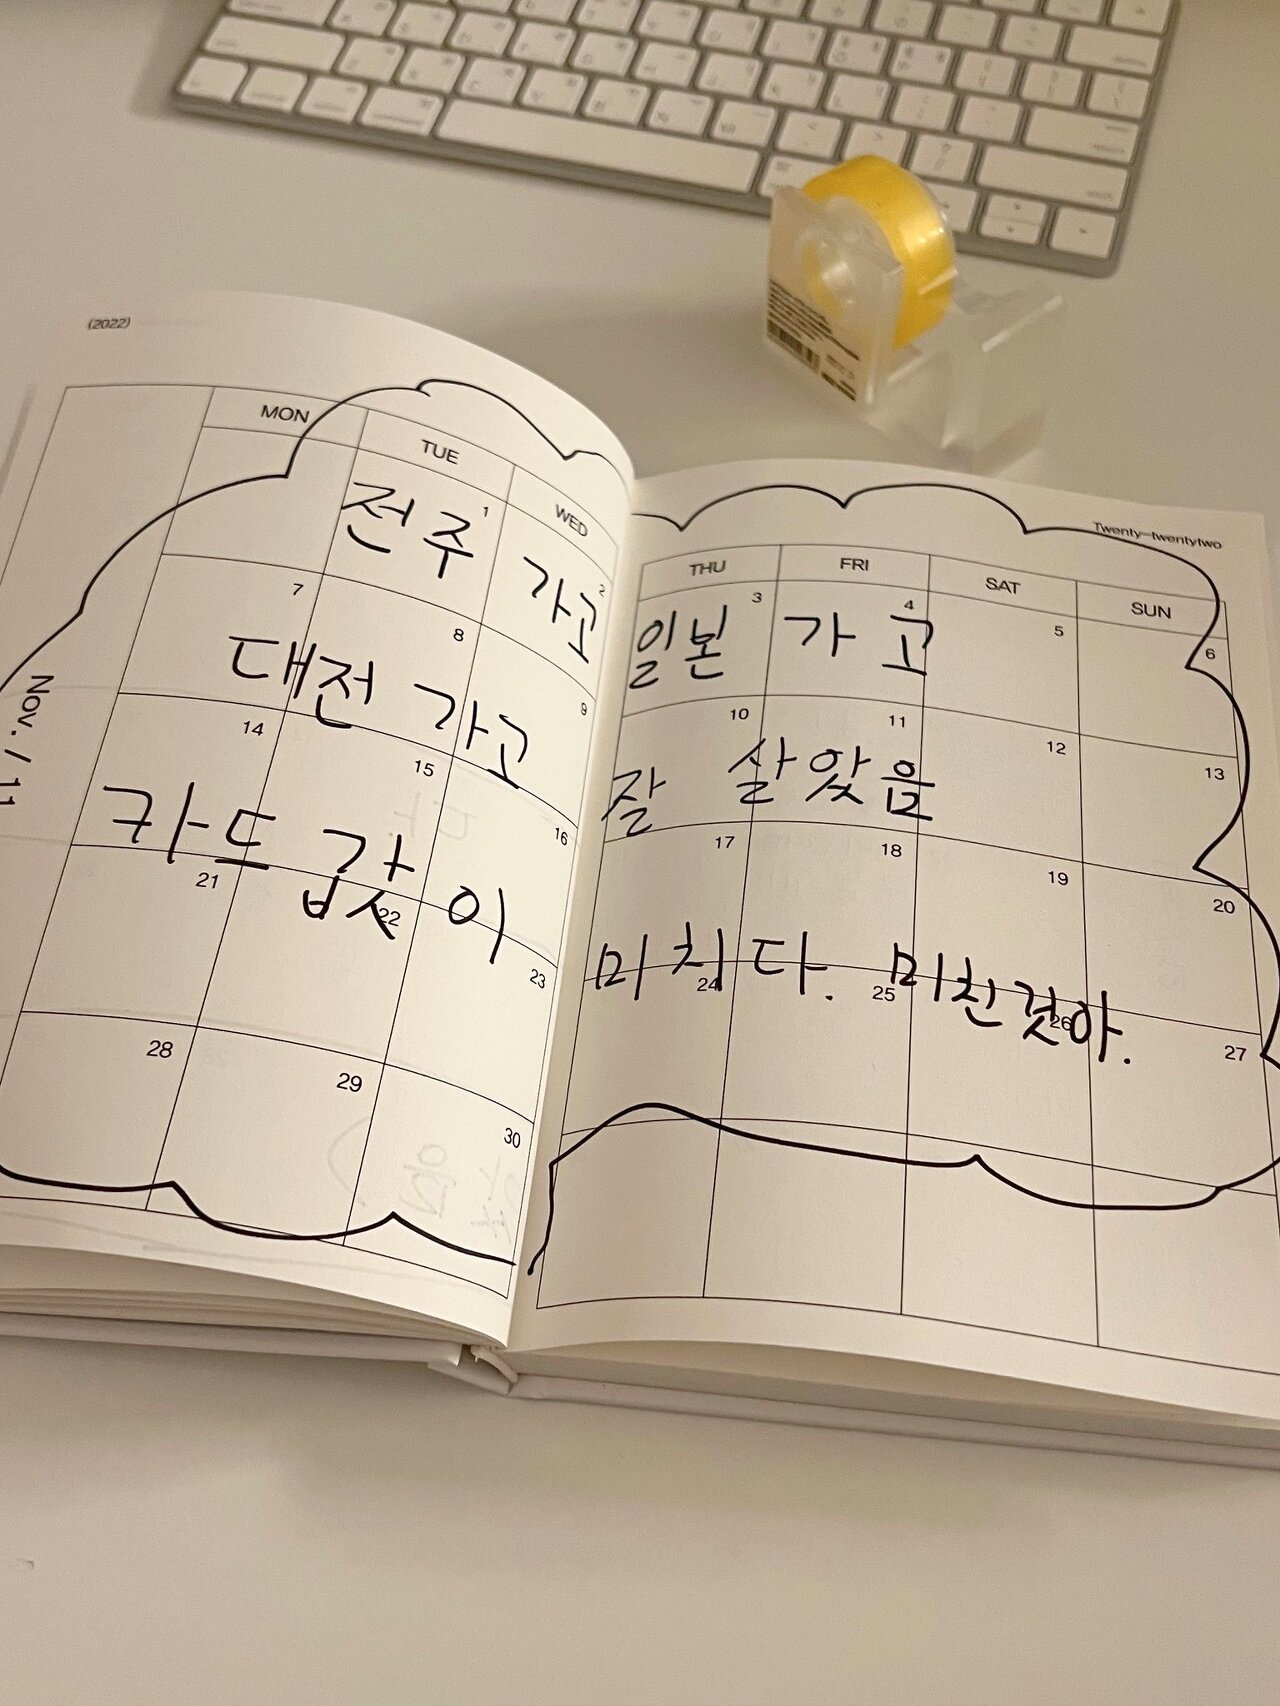 (2022)
Twenty—twentytwo
Nov. / 11
MON TUE WED THU FRI SAT SUN
1 2 3 4 5 6
전주 가고 일본 가고
7 8 9 10 11 12 13
대전 가고 잘 살았음
14 15 16 17 18 19 20
카드 값이 미칬다. 미친것아.
21 22 23 24 25 26 27
28 29 30